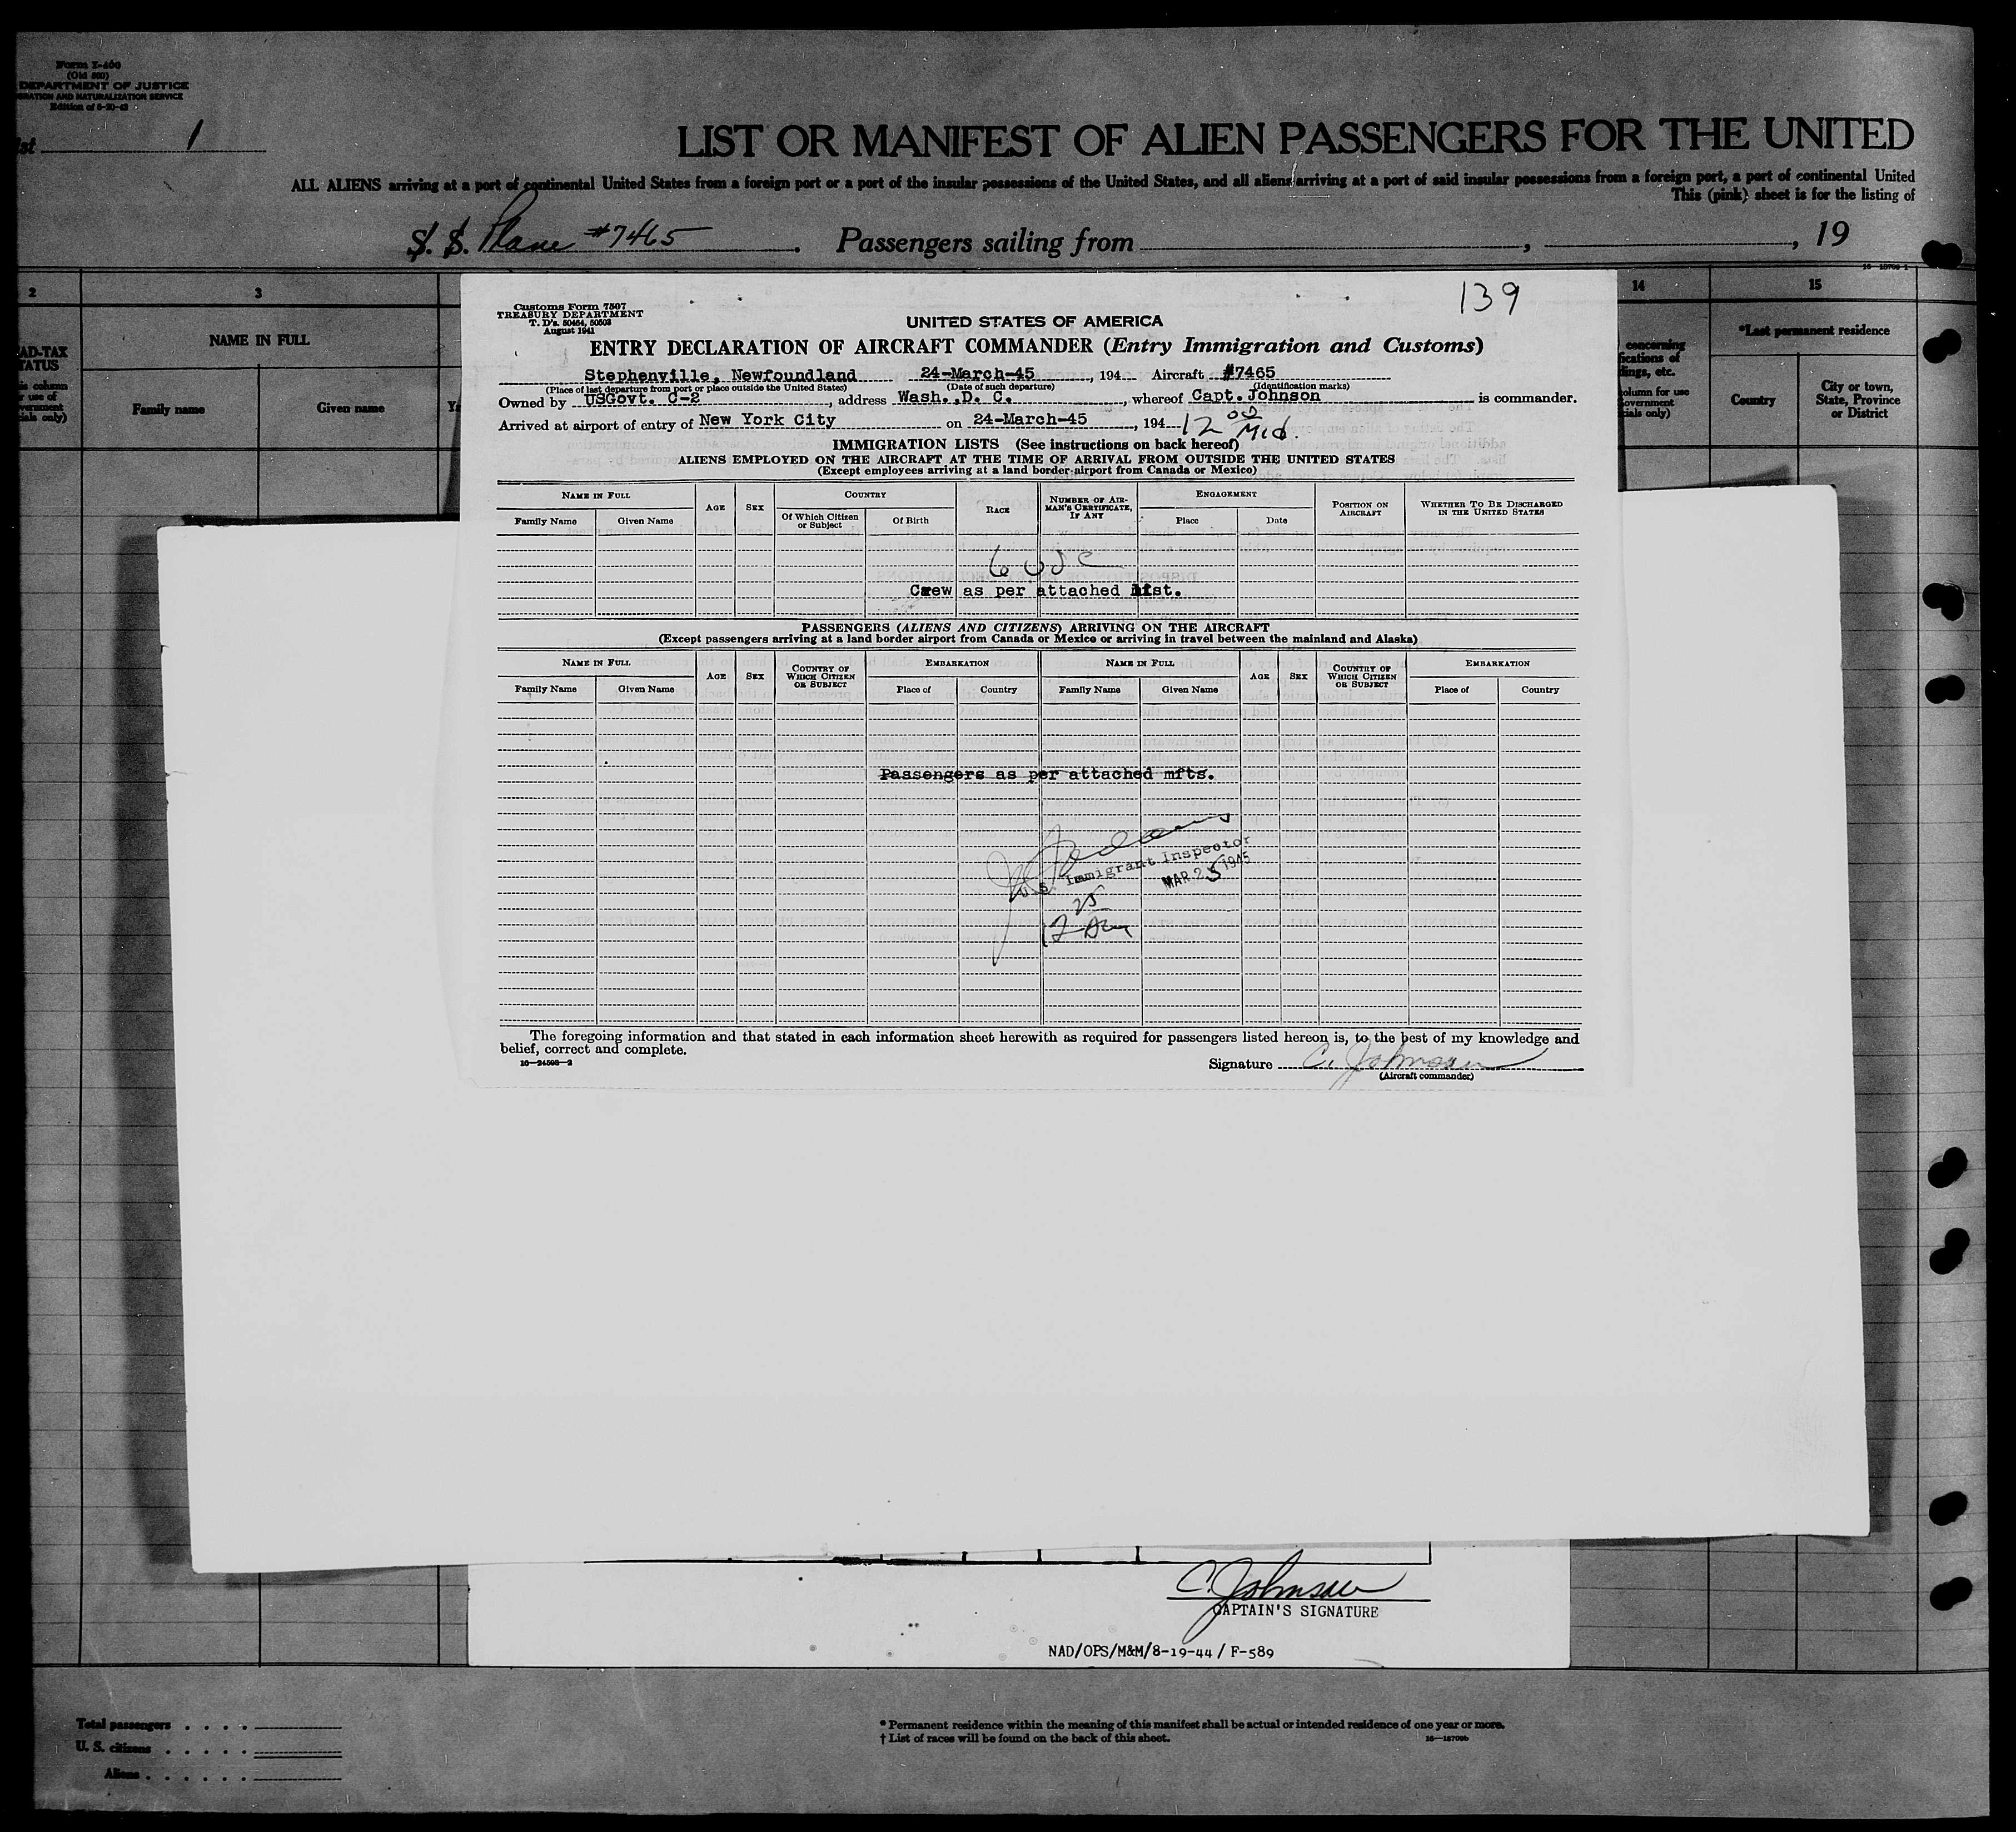 Form I-400
(Old 500)
DEPARTMENT OF JUSTICE
IMMIGRATION AND NATURALIZATION SERVICE
Edition of 6-20-42
1
LIST OR MANIFEST OF ALIEN PASSENGERS FOR THE UNITED
ALL ALIENS arriving at a port of continental United States from a foreign port or a port of the insular possessions of the United States, and all aliens arriving at a port of said insular possessions from a foreign port, a port of continental United
This (pink) sheet is for the listing of
S. S. Plane #7465. Passengers sailing from , , 19
2 3 14 15
NAME IN FULL *Last permanent residence
Family name Given name Country City or town, State, Province or District
139
Customs Form 7507
TREASURY DEPARTMENT
T. D's. 50464, 50503
August 1941
UNITED STATES OF AMERICA
ENTRY DECLARATION OF AIRCRAFT COMMANDER (Entry Immigration and Customs)
Stephenville, Newfoundland 24-March-45, 194 Aircraft #7465
(Place of last departure from port or place outside the United States) (Date of such departure) (Identification marks)
Owned by USGovt. C-2, address Wash., D. C., whereof Capt. Johnson is commander.
Arrived at airport of entry of New York City on 24-March-45, 194 12 00 Mid.
IMMIGRATION LISTS (See instructions on back hereof)
ALIENS EMPLOYED ON THE AIRCRAFT AT THE TIME OF ARRIVAL FROM OUTSIDE THE UNITED STATES
(Except employees arriving at a land border airport from Canada or Mexico)
NAME IN FULL AGE SEX COUNTRY RACE NUMBER OF AIRMAN'S CERTIFICATE, IF ANY ENGAGEMENT POSITION ON AIRCRAFT WHETHER TO BE DISCHARGED IN THE UNITED STATES
Family Name Given Name Of Which Citizen or Subject Of Birth Place Date
6 USC
Crew as per attached list.
PASSENGERS (ALIENS AND CITIZENS) ARRIVING ON THE AIRCRAFT
(Except passengers arriving at a land border airport from Canada or Mexico or arriving in travel between the mainland and Alaska)
NAME IN FULL AGE SEX COUNTRY OF WHICH CITIZEN OR SUBJECT EMBARKATION NAME IN FULL AGE SEX COUNTRY OF WHICH CITIZEN OR SUBJECT EMBARKATION
Family Name Given Name Place of Country Family Name Given Name Place of Country
Passengers as per attached mfts.
U. S. Immigrant Inspector
MAR 25 1945
25
12
The foregoing information and that stated in each information sheet herewith as required for passengers listed hereon is, to the best of my knowledge and
belief, correct and complete.
16—24598-2
Signature C. Johnson
(Aircraft commander)
C. Johnson
CAPTAIN'S SIGNATURE
NAD/OPS/M&M/8-19-44 / F-589
Total passengers
U. S. citizens
Aliens
* Permanent residence within the meaning of this manifest shall be actual or intended residence of one year or more.
† List of races will be found on the back of this sheet.